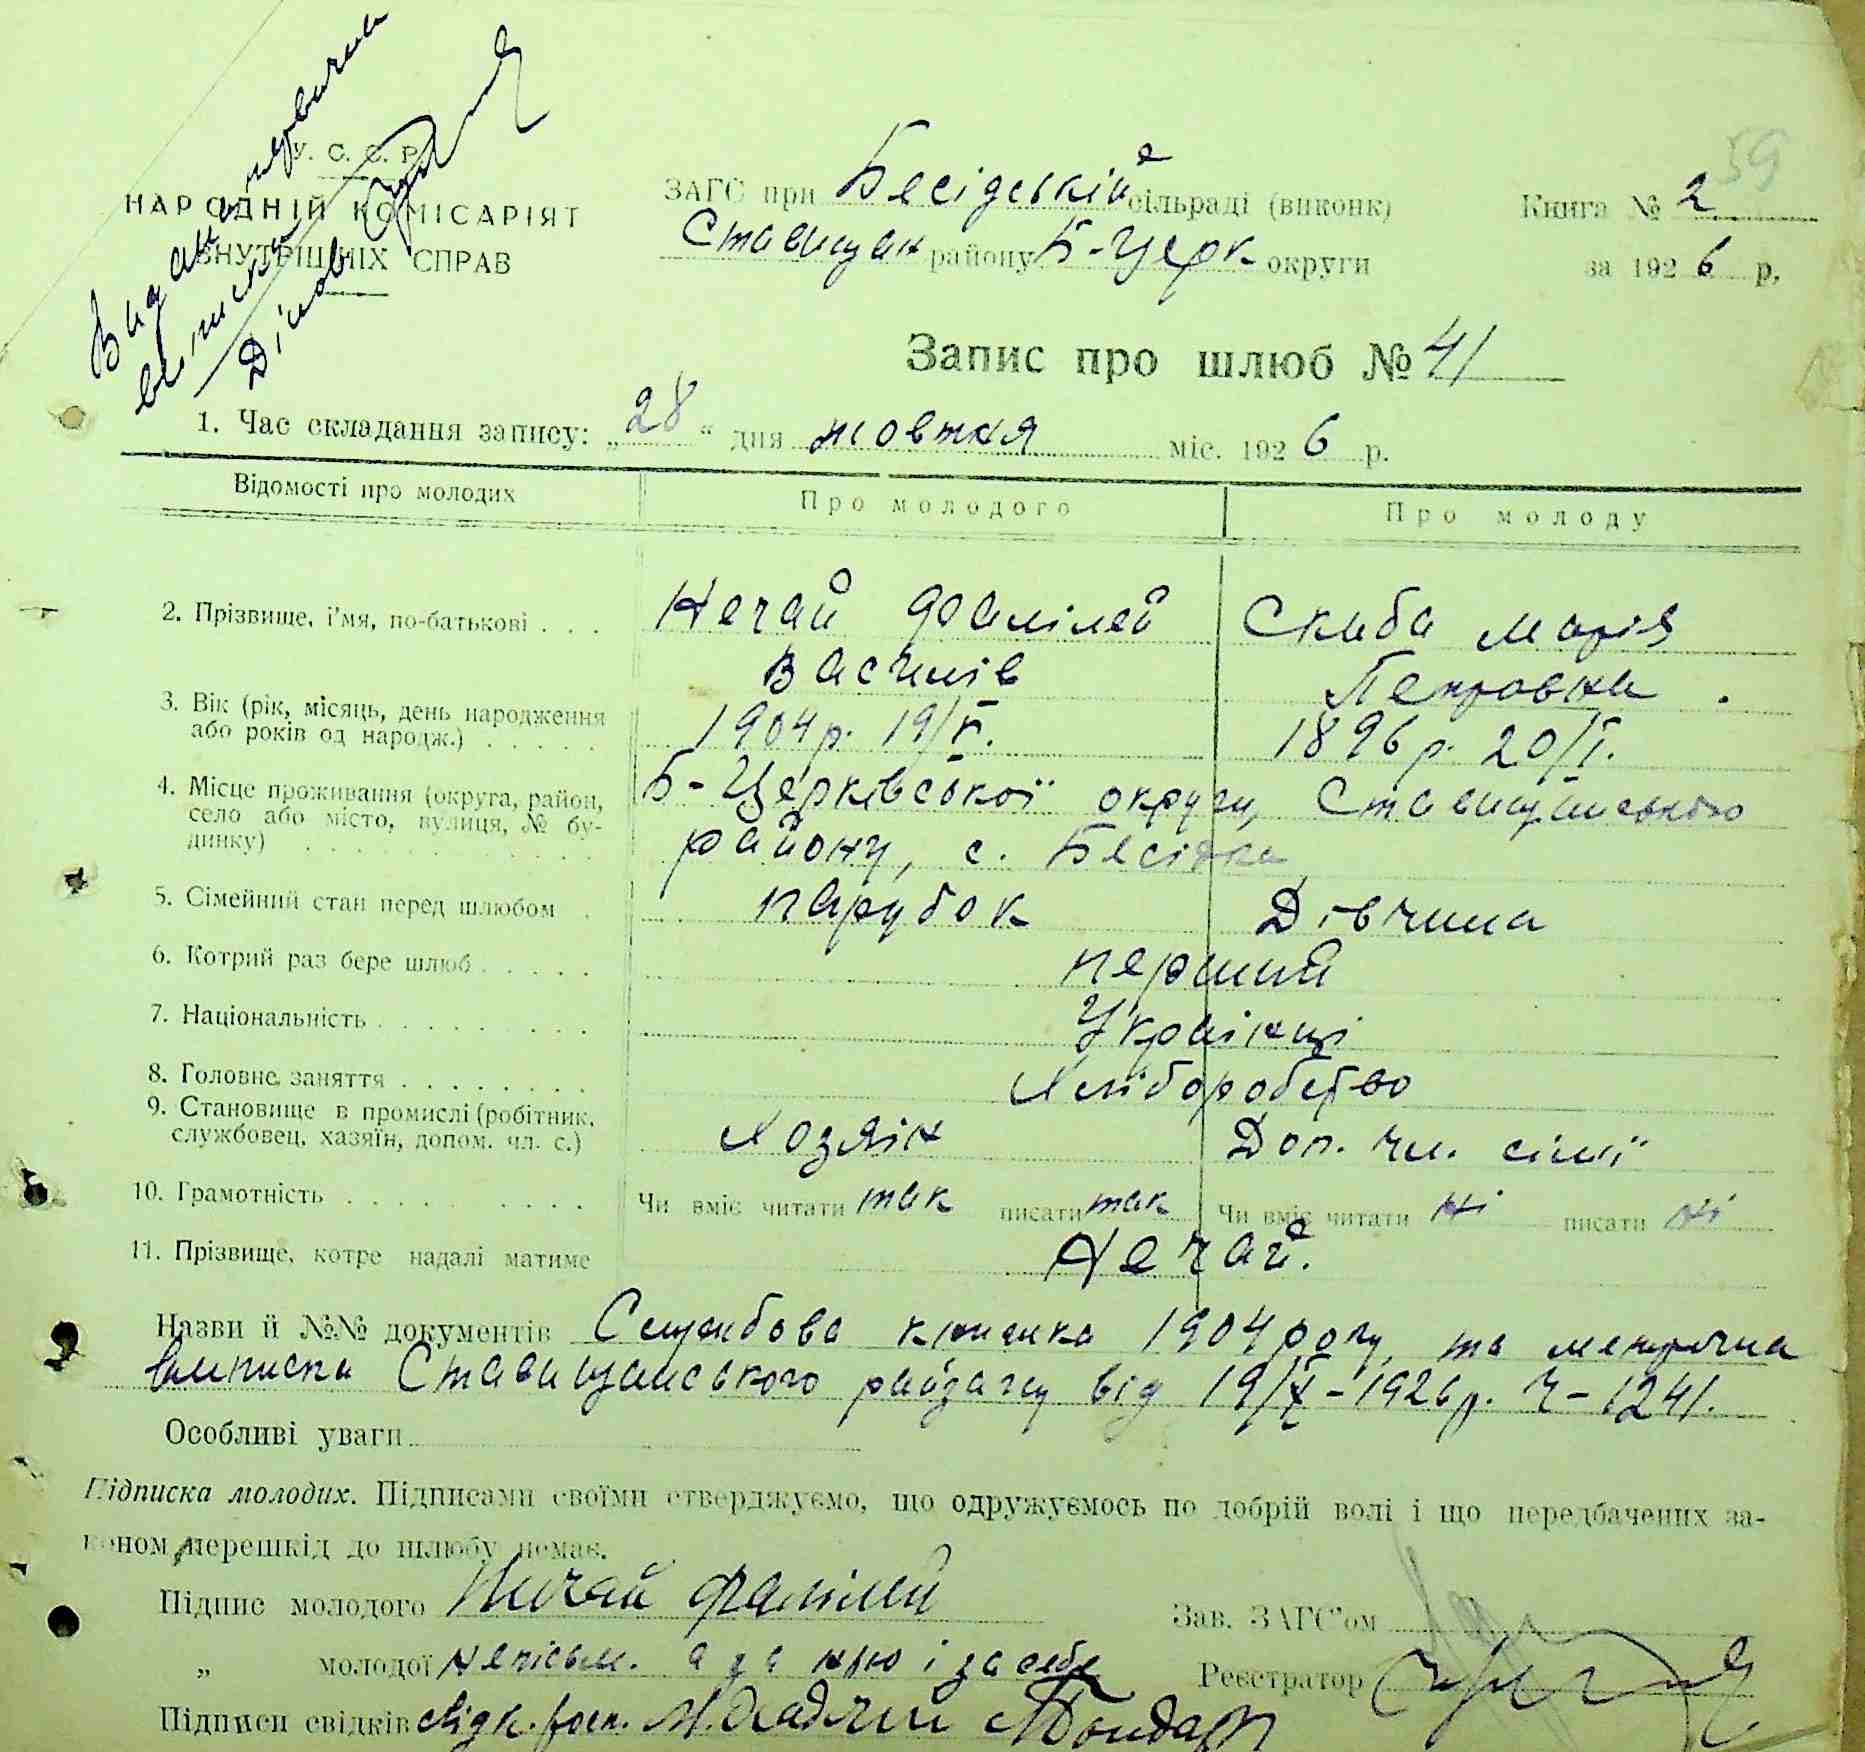 Видан первичн
виписки
Діловод
У. С. С. Р.
НАРОДНІЙ КОМІСАРІЯТ
ВНУТРІШНІХ СПРАВ
59
ЗАГС при Бесідській сільраді (виконк)
Ставищан району Б-Церк округи
Книга № 2
за 1926 р,
Запис про шлюб № 41
1. Час складання запису: „28“ дня жовтня міс. 1926 р.
Відомості про молодих Про молодого Про молоду
2. Прізвище, і'мя, по-батькові . . . Нечай Фамілей Скиба Марія
Василів Петровна.
3. Вік (рік, місяць, день народження
або років од народж.) . . . . . 1904 р. 19/ 1896 р. 20/I.
4. Місце проживання (округа, район,
село або місто, вулиця, № бу-
динку) . . . . . . . . . . . Б-Церківської округи, Ставищанського
району, с. Бесідка
5. Сімейний стан перед шлюбом . парубок Дівчина
6. Котрий раз бере шлюб . . . . . перший
7. Національність . . . . . . . . Українці
8. Головне заняття . . . . . . . . Хліборобство
9. Становище в промислі (робітник,
службовец, хазяїн, допом. чл. с.) Хозяін Доп. чл. сімї
10. Грамотність . . . . . . . . . Чи вміє читати так писати так Чи вміє читати ні писати ні
11. Прізвище, котре надалі матиме Нечай.
Назви й №№ документів Службова книжка 1904 року, та метрична
виписка Ставищанського райзагсу від 19/X-1926 р. Ч-1241.
Особливі уваги
Підписка молодих. Підписами своїми стверджуємо, що одружуємось по добрій волі і що передбачених за-
коном перешкід до шлюбу немає.
Підпис молодого Ничай Фамілий
Зав. ЗАГС'ом
„ молодої неписьм. а за нею і за себе
Реєстратор
Підписи свідків Бондар